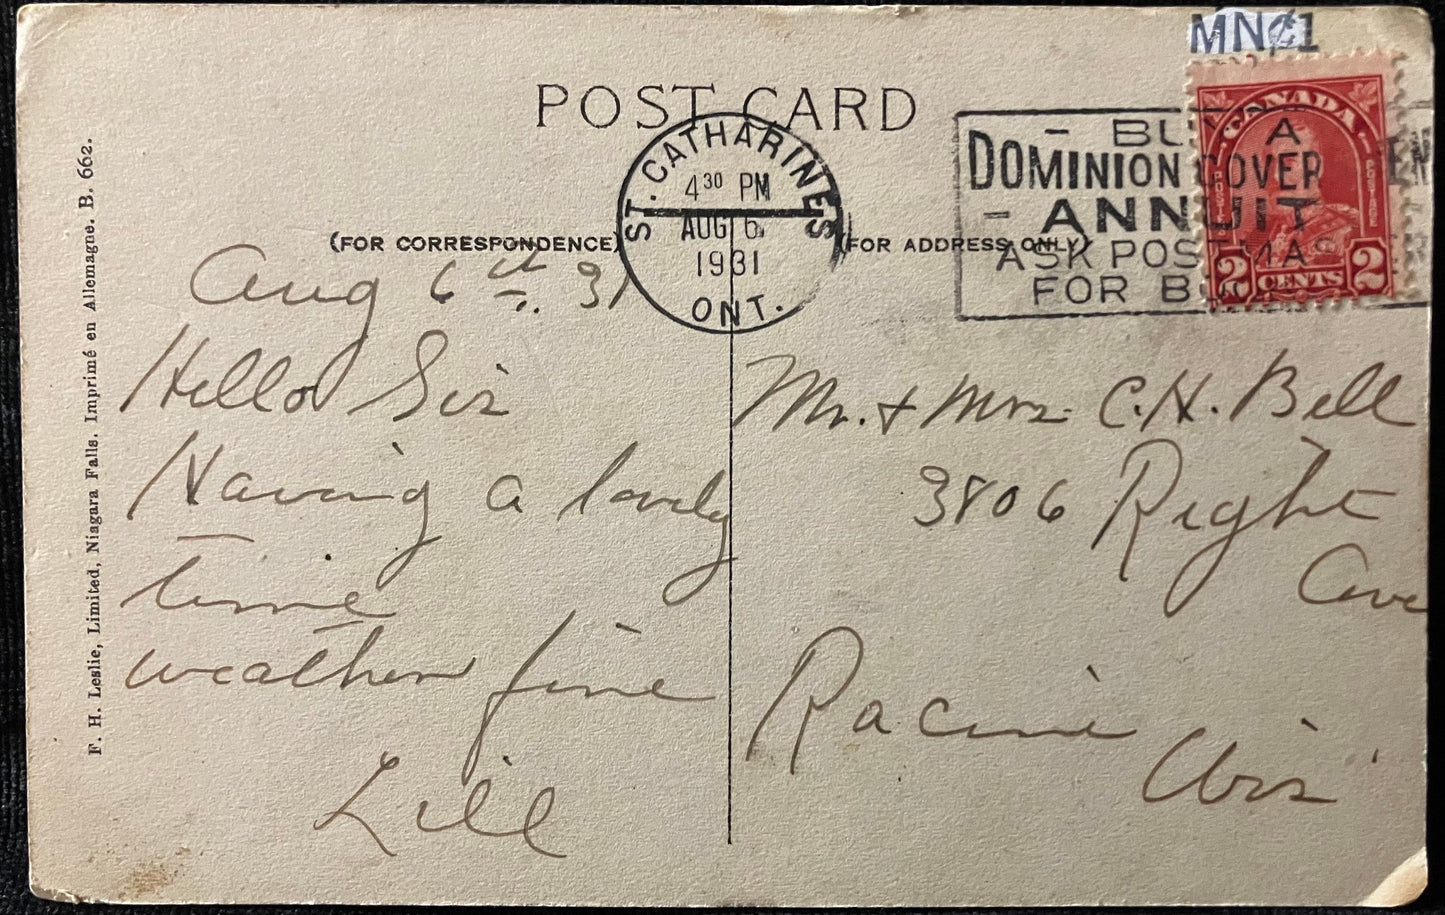 MN¢1
POST CARD
ST. CATHARINES
4 30 PM
AUG 6
1931
ONT.
BU A
DOMINION GOVER EN
ANNUIT
ASK POSTMASTER
FOR B
CANADA
POSTES
POSTAGE
2 CENTS 2
(FOR CORRESPONDENCE)
(FOR ADDRESS ONLY)
F. H. Leslie, Limited, Niagara Falls. Imprimé en Allemagne. B. 662.
Aug 6th. 31
Hello Sis
Having a lovely
time
weather fine
Lill
Mr. & Mrs. C. H. Bell
3806 Right
Ave
Racine
Wis